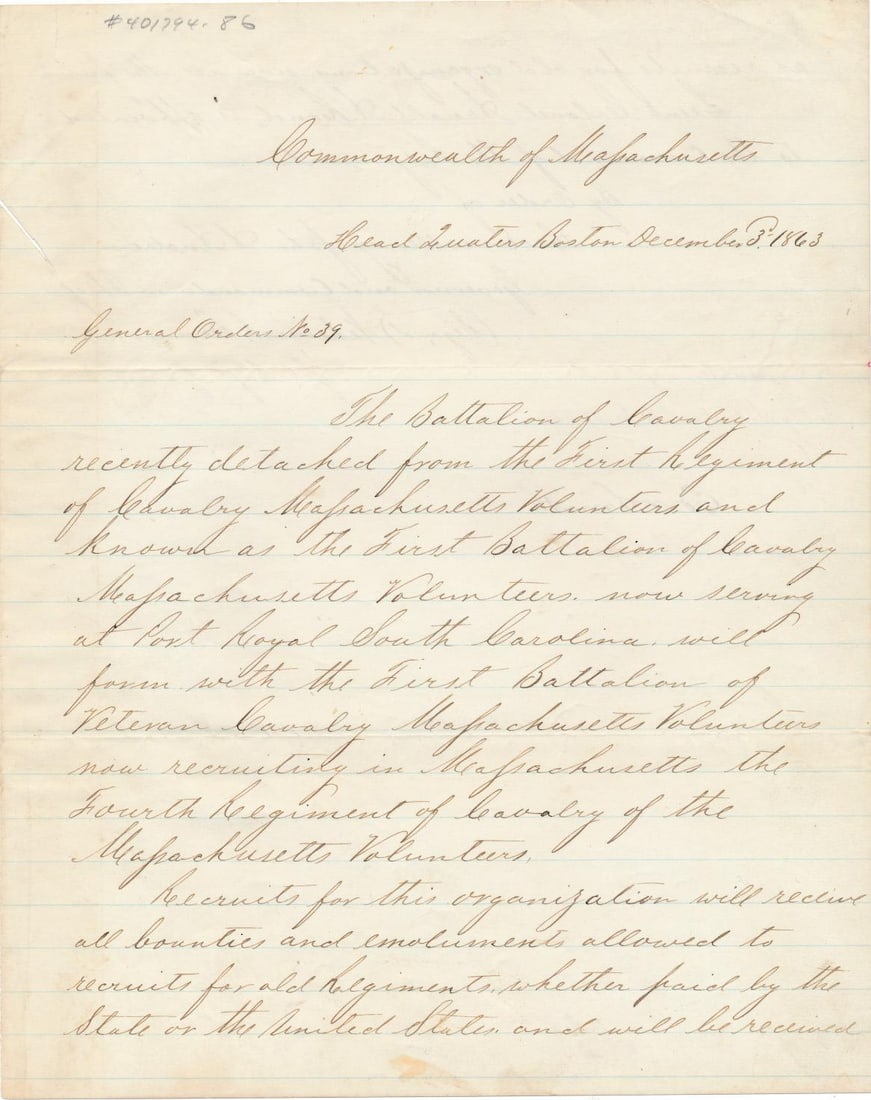 #401794.86
Commonwealth of Massachusetts
Head Quaters Boston December 3d. 1863
General Orders No 39.
The Battalion of Cavalry
recently detached from the First Regiment
of Cavalry Massachusetts Volunteers and
known as the First Battalion of Cavalry
Massachusetts Volunteers. now serving
at Port Royal South Carolina. will
form with the First Battalion of
Veteran Cavalry Massachusetts Volunteers
now recruiting in Massachusetts the
Fourth Regiment of Cavalry of the
Massachusetts Volunteers.
Recruits for this organization will receive
all bounties and emoluments allowed to
recruits for old Regiments. whether paid by the
State or the United States. and will be received